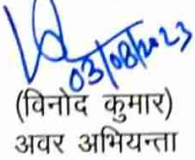 03/08/2023
(विनोद कुमार)
अवर अभियन्ता